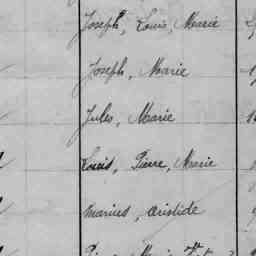 Joseph, Louis, Marie
Joseph, Marie
Jules, Marie
Louis, Pierre, Marie
Marius, Aristide